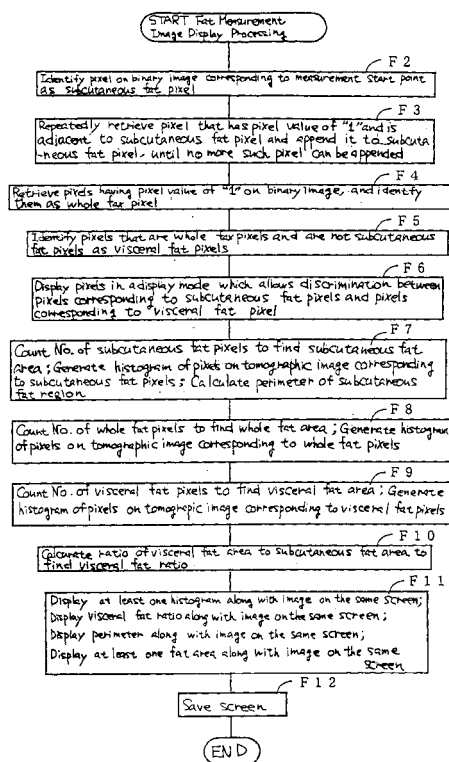 START Fat Measurement
Image Display Processing
F2
Identify pixel on binary image corresponding to measurement start point
as subcutaneous fat pixel
F3
Repeatedly retrieve pixel that has pixel value of "1" and is
adjacent to subcutaneous fat pixel and append it to subcuta
-neous fat pixel, until no more such pixel can be appended
F4
Retrieve pixels having pixel value of "1" on binary image, and identify
them as whole fax pixel
F5
Identify pixels that are whole fax pixels and are not subcutaneous
fat pixels as visceral fat pixels
F6
Display pixels in a display mode which allows discrimination between
pixels corresponding to subcutaneous fat pixels and pixels
corresponding to visceral fat pixel
F7
Count No. of subcutaneous fat pixels to find subcutaneous fat
area; Generate histogram of pixels on tomographic image corresponding
to subcutaneous fat pixels; Calculate perimeter of subcutaneous
fat region
F8
Count No. of whole fat pixels to find whole fat area; Generate histogram
of pixels on tomographic image corresponding to whole fat pixels
F9
Count No. of visceral fat pixels to find visceral fat area; Generate
histogram of pixels on tomograpic image corresponding to visceral fat pixels
F10
Calcurate ratio of visceral fat area to subcutaneous fat area to
find visceral fat ratio
F11
Display at least one histogram along with image on the same screen;
Display visceral fat ratio along with image on the same screen;
Display perimeter along with image on the same screen;
Display at least one fat area along with image on the same
screen
F12
Save screen
END